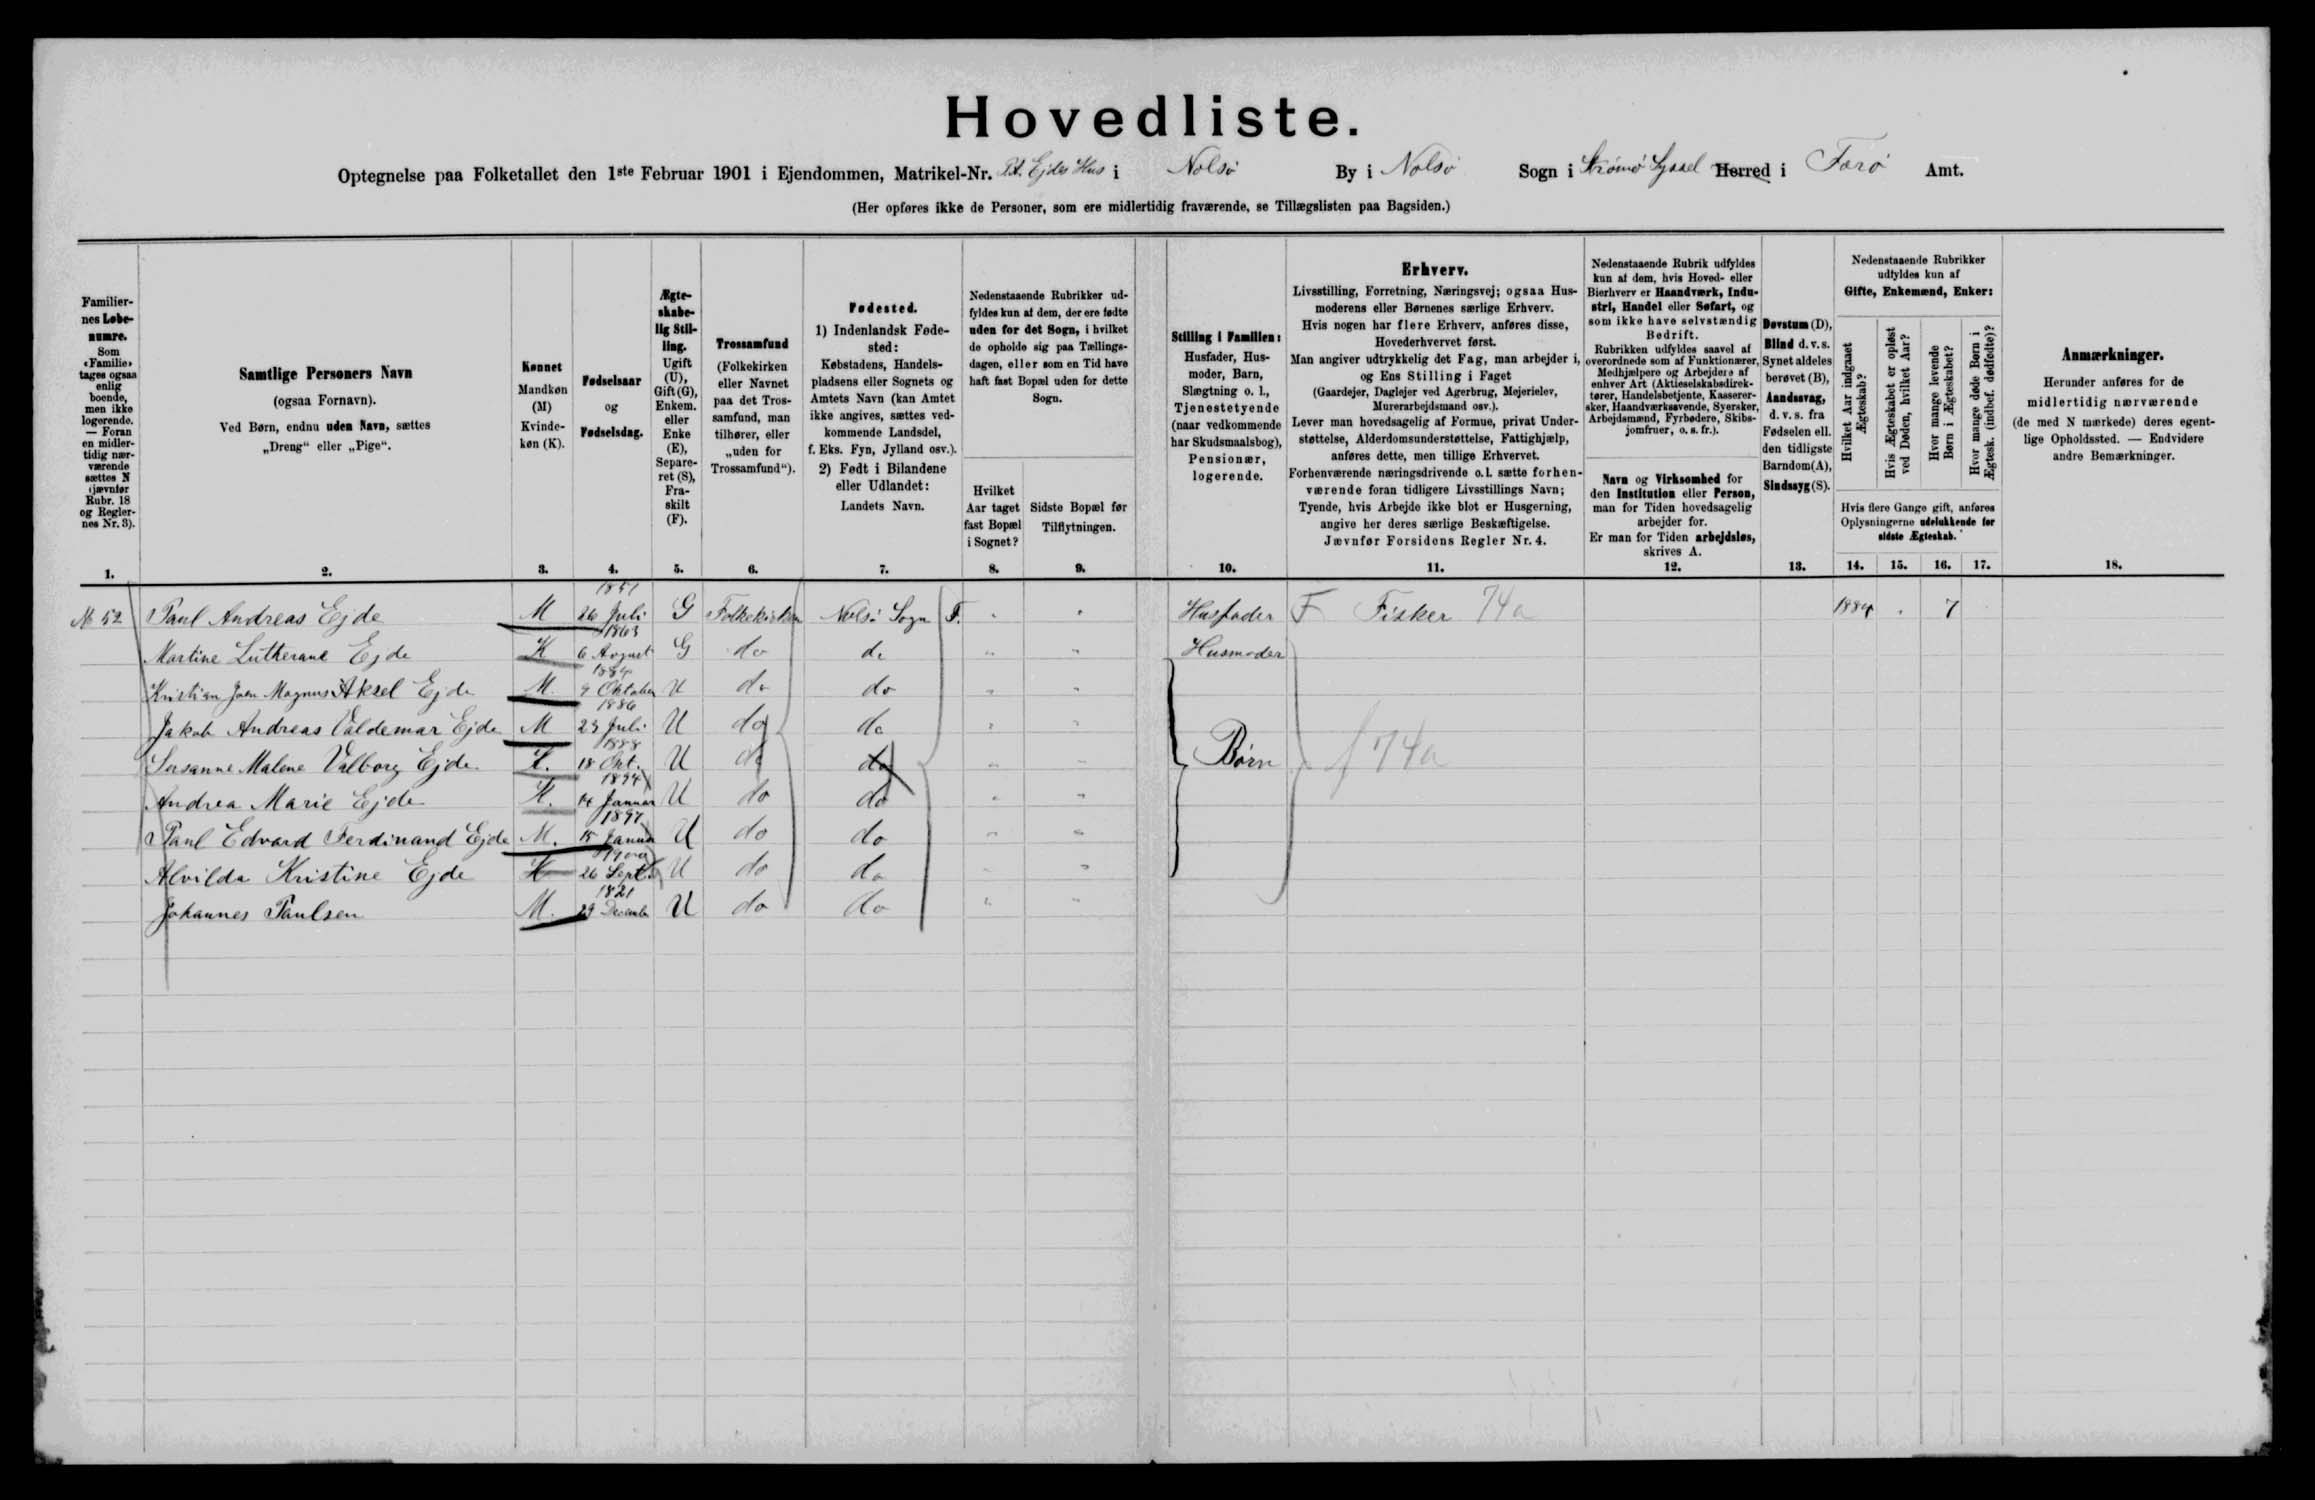 Hovedliste.
Optegnelse paa Folketallet den 1ste Februar 1901 i Ejendommen, Matrikel-Nr. P.A. Ejdes Hus i Nolsø By i Nolsø Sogn i Strømø Syssel Herred i Færø Amt.
(Her opføres ikke de Personer, som ere midlertidig fraværende, se Tillægslisten paa Bagsiden.)
Familiernes Løbenumre.
Som «Familie» tages ogsaa enlig boende, men ikke logerende. — Foran en midlertidig nærværende sættes N (jævnfør Rubr. 18 og Reglernes Nr. 3).
Samtlige Personers Navn
(ogsaa Fornavn).
Ved Børn, endnu uden Navn, sættes
„Dreng“ eller „Pige“.
Kønnet
Mandkøn (M)
Kvindekøn (K).
Fødselsaar
og
Fødselsdag.
Ægteskabelig Stilling.
Ugift (U), Gift (G), Enkem. eller Enke (E), Separeret (S), Fraskilt (F).
Trossamfund
(Folkekirken eller Navnet paa det Trossamfund, man tilhører, eller „uden for Trossamfund“).
Fødested.
1) Indenlandsk Fødested:
Købstadens, Handelspladsens eller Sognets og Amtets Navn (kan Amtet ikke angives, sættes vedkommende Landsdel, f. Eks. Fyn, Jylland osv.).
2) Født i Bilandene eller Udlandet:
Landets Navn.
Nedenstaaende Rubrikker udfyldes kun af dem, der ere fødte uden for det Sogn, i hvilket de opholde sig paa Tællingsdagen, eller som en Tid have haft fast Bopæl uden for dette Sogn.
Hvilket Aar taget fast Bopæl i Sognet?
Sidste Bopæl før Tilflytningen.
Stilling i Familien:
Husfader, Husmoder, Barn, Slægtning o. l., Tjenestetyende (naar vedkommende har Skudsmaalsbog), Pensionær, logerende.
Erhverv.
Livsstilling, Forretning, Næringsvej; ogsaa Husmoderens eller Børnenes særlige Erhverv.
Hvis nogen har flere Erhverv, anføres disse, Hovederhvervet først.
Man angiver udtrykkelig det Fag, man arbejder i, og Ens Stilling i Faget
(Gaardejer, Daglejer ved Agerbrug, Mejerielev, Murerarbejdsmand osv.).
Lever man hovedsagelig af Formue, privat Understøttelse, Alderdomsunderstøttelse, Fattighjælp, anføres dette, men tillige Erhvervet.
Forhenværende næringsdrivende o. l. sætte forhenværende foran tidligere Livsstillings Navn;
Tyende, hvis Arbejde ikke blot er Husgerning, angive her deres særlige Beskæftigelse.
Jævnfør Forsidens Regler Nr. 4.
Nedenstaaende Rubrik udfyldes kun af dem, hvis Hoved- eller Bierhverv er Haandværk, Industri, Handel eller Søfart, og som ikke have selvstændig Bedrift.
Rubrikken udfyldes saavel af overordnede som af Funktionærer, Medhjælpere og Arbejdere af enhver Art (Aktieselskabsdirektører, Handelsbetjente, Kasserersker, Haandværkssvende, Syersker, Arbejdsmænd, Fyrbødere, Skibsjomfruer, o. s. fr.).
Navn og Virksomhed for den Institution eller Person, man for Tiden hovedsagelig arbejder for.
Er man for Tiden arbejdsløs, skrives A.
Døvstum (D),
Blind d. v. s. Synet aldeles berøvet (B),
Aandssvag, d. v. s. fra Fødselen ell. den tidligste Barndom (A),
Sindssyg (S).
Nedenstaaende Rubrikker udfyldes kun af
Gifte, Enkemænd, Enker:
Hvilket Aar indgaaet Ægteskab?
Hvis Ægteskabet er opløst ved Døden, hvilket Aar?
Hvor mange levende Børn i Ægteskabet?
Hvor mange døde Børn i Ægtesk. (indbef. dødfødte)?
Hvis flere Gange gift, anføres Oplysningerne udelukkende for sidste Ægteskab.
Anmærkninger.
Herunder anføres for de midlertidig nærværende (de med N mærkede) deres egentlige Opholdssted. — Endvidere andre Bemærkninger.
1. 2. 3. 4. 5. 6. 7. 8. 9. 10. 11. 12. 13. 14. 15. 16. 17. 18.
№ 52 Paul Andreas Ejde M 1851 26 Juli G Folkekirken Nolsø Sogn F. " " Husfader F Fisker 74a 1884 " 7
Martine Lutherane Ejde K 1863 6 August G do do " " Husmoder
Kristian Joen Magnus Aksel Ejde M. 1884 9 Oktober U do do " "
Jakob Andreas Valdemar Ejde M 1886 23 Juli U do do " "
Susanne Malene Valborg Ejde K. 1888 18 Okt. U do do " " Børn f 74a
Andrea Marie Ejde K. 1894 14 Januar U do do " "
Paul Edvard Ferdinand Ejde M. 1897 15 Januar U do do " "
Alvilda Kristine Ejde K 1900 26 Sept. U do do " "
Johannes Paulsen M. 1821 29 December U do do " "